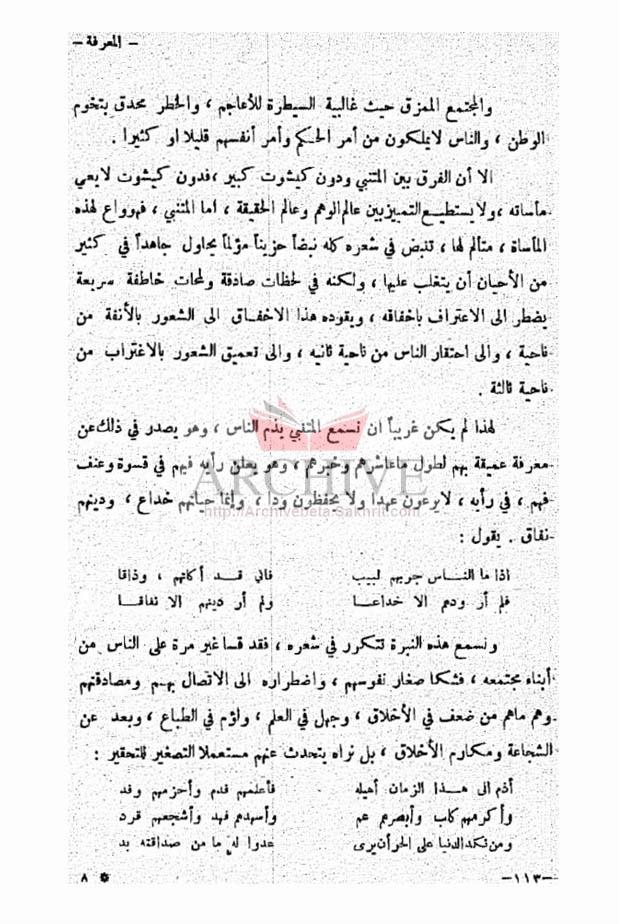 - المعرفة -
والمجتمع الممزق حيث غالبية السيطرة للأعاجم ، والخطر محدق بتخوم
الوطن ، والناس لايملكون من أمر الحكم وأمر أنفسهم قليلا او كثيرا .
الا أن الفرق بين المتنبي ودون كيشوت كبير ،فدون كيشوت لايعي
مأساته ،ولايستطيع التمييزبين عالم الوهم وعالم الحقيقة ، أما المتنبي ، فهوواع لهذه
المأساة ، متألم لها ، تنبض في شعره كله نبضاً حزيناً مؤلماً يحاول جاهداً في كثير
من الأحيان أن يتغلب عليها ، ولكنه في لحظات صادقة ولمحات خاطفة سريعة
يضطر الى الاعتراف باخفاقه ، ويقوده هذا الاخفاق الى الشعور بالأنفة من
ناحية ، والى احتقار الناس من ناحية ثانيه ، والى تعميق الشعور بالاغتراب من
ناحية ثالثة .
لهذا لم يكن غريباً ان نسمع المتنبي يذم الناس ، وهو يصدر في ذلك عن
معرفة عميقة بهم لطول ماعاشرهم وخبرهم ، وهو يعلن رأيه فيهم في قسوة وعنف
فهم ، في رأيه ، لايرعون عهداً ولا يحفظون وداً ، وإنما حياتهم خداع ، ودينهم
نفاق . يقول :
اذا ما النـــاس جربهم لبيب فاني قــد أكلتهم ، وذاقا
فلم أر ودهم الا خداعــا ولم أر دينهم الا نفاقــا
ونسمع هذه النبرة تتكرر في شعره ، فقد قسا غير مرة على الناس من
أبناء مجتمعه ، فشكا صغار نفوسهم ، واضطراره الى الاتصال بهـم ومصادقتهم
وهم ماهم من ضعف في الأخلاق ، وجهل في العلم ، ولؤم في الطباع ، وبعد عن
الشجاعة ومكارم الأخلاق ، بل نراه يتحدث عنهم مستعملا التصغير للتحقير :
أذم الى هــذا الزمان أهيله فأعلمهم فدم وأحزمهم وغد
وأكرمهم كلب وأبصرهم عم وأسهدهم فهد وأشجعهم قرد
ومن نكد الدنيا على الحر أن يرى عدوا له ما من صداقته بد
-١١٣- ٨ *
ARCHIVE
http://Archivebeta.Sakhrit.com